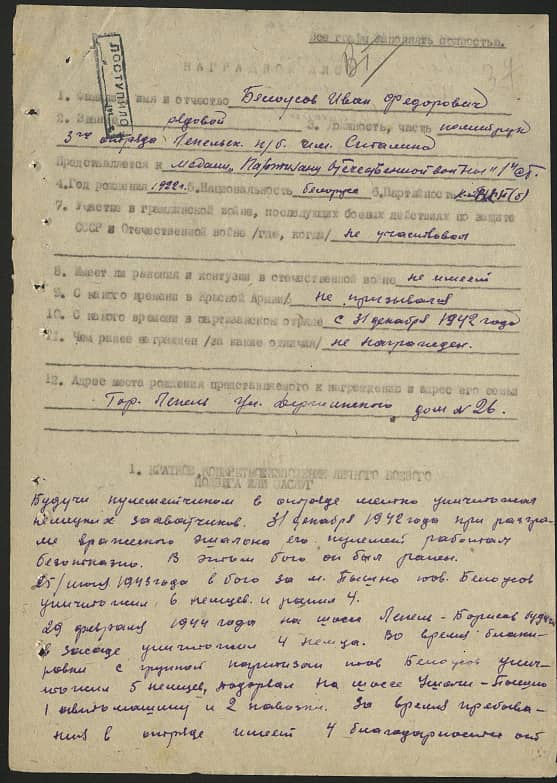 Все графы заполнять полностью.
37
НАГРАДНОЙ ЛИСТ
ПОСТУПИЛО
1. Фамилия, имя и отчество Белоусов Иван Федорович
2. Звание рядовой 3. Должность, часть политрук
3го отряда Лепельск. п/б. им. Сталина
Представляется к медали „Партизану Отечественной войны" 1ой ст.
4. Год рождения 1922 г. 5. Национальность белорус 6. Партийность ВКП(б)
7. Участие в гражданской войне, последующих боевых действиях по защите
СССР и Отечественной войне /где, когда/ не участвовал
8. Имеет ли ранения и контузии в отечественной войне не имеет
9. С какого времени в Красной Армии/ не призывался
10. С какого времени в партизанском отряде с 31 декабря 1942 года
11. Чем ранее награжден /за какие отличия/ не награжден.
12. Адрес места рождения представляемого к награждению и адрес его семьи
Гор. Лепель ул. Дзержинского, дом № 26.
1. КРАТКОЕ, КОНКРЕТНОЕ ИЗЛОЖЕНИЕ ЛИЧНОГО БОЕВОГО
ПОДВИГА ИЛИ ЗАСЛУГ
Будучи пулеметчиком в отряде метко уничтожал
немецких захватчиков. 31 декабря 1942 года при разгро-
ме вражеского эшалона его пулемет работал
безотказно. В этом бою он был ранен.
25/июня 1943 года в бою за м. Пышно тов. Белоусов
уничтожил 6 немцев и ранил 4.
29 февраля 1944 года на шоссе Лепель - Борисов будучи
в засаде уничтожил 4 немца. Во время блоки-
ровки с группой партизан тов Белоусов унич-
тожил 5 немцев, подорвал на шоссе Ушачи - Пышно
1 автомашину и 2 повозки. За время пребыва-
ния в отряде имеет 4 благодарности от